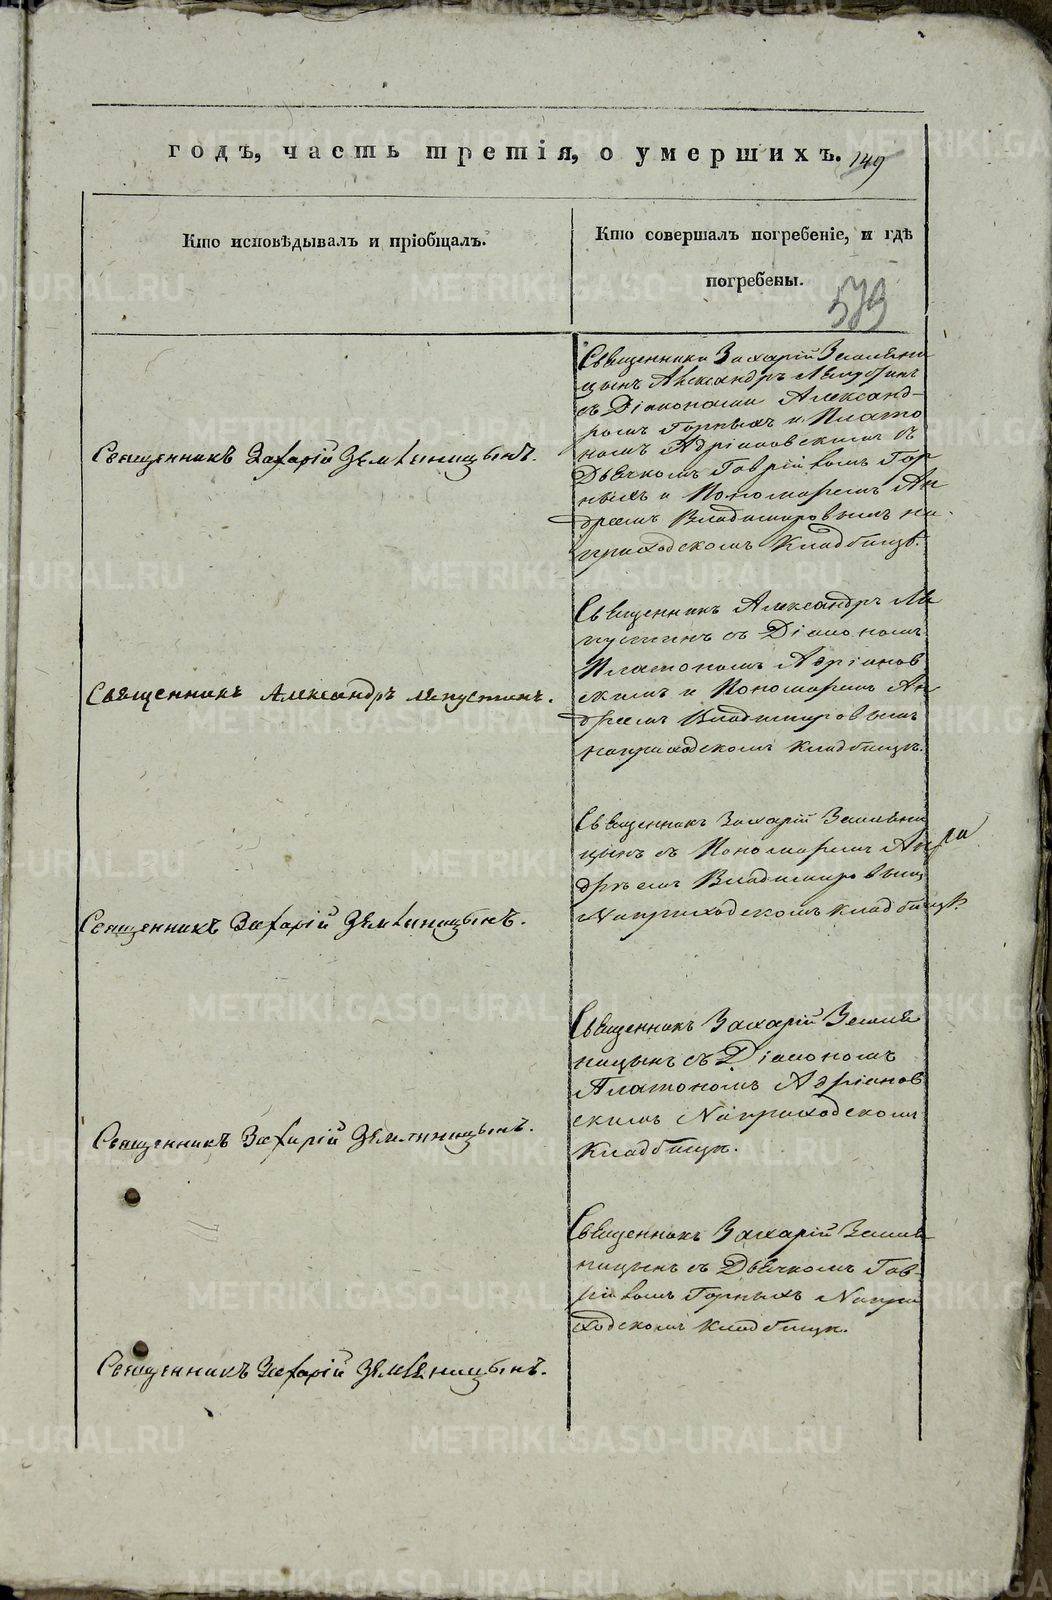 годъ, часть третія, о умершихъ. 149
Кто исповѣдывалъ и пріобщалъ.
Кто совершалъ погребеніе, и гдѣ
погребены.
573
Священникъ Захарій Земляницынъ.
Священники Захарій Земляни
цынъ Александръ Ляпустинъ
съ Діаконами Александ-
ромъ Горныхъ и Плато
номъ Адріановскимъ съ
Дьячкомъ Гавріиломъ Гор
ныхъ и Пономаремъ Ан
дреемъ Владимировымъ на
приходскомъ Кладбищѣ.
Священникъ Александръ Ляпустинъ.
Священникъ Александръ Ля
пустинъ съ Діакономъ
Платономъ Адріанов
скимъ и Пономаремъ Ан
дреемъ Владимировымъ
на приходскомъ кладбищѣ.
Священникъ Захарій Земляницынъ.
Священникъ Захарій Земляни
цынъ съ Пономаремъ Ан
дреемъ Владимировымъ
На приходскомъ кладбищѣ.
Священникъ Захарій Земляницынъ.
Священникъ Захарій Земля
ницынъ съ Діакономъ
Платономъ Адріанов
скимъ На приходскомъ
кладбищѣ.
Священникъ Захарій Земляницынъ.
Священникъ Захарій Земля
ницынъ съ Дьячкомъ Гав-
ріиломъ Горныхъ На при
ходскомъ кладбищѣ.
METRIKI.GASO-URAL.RU